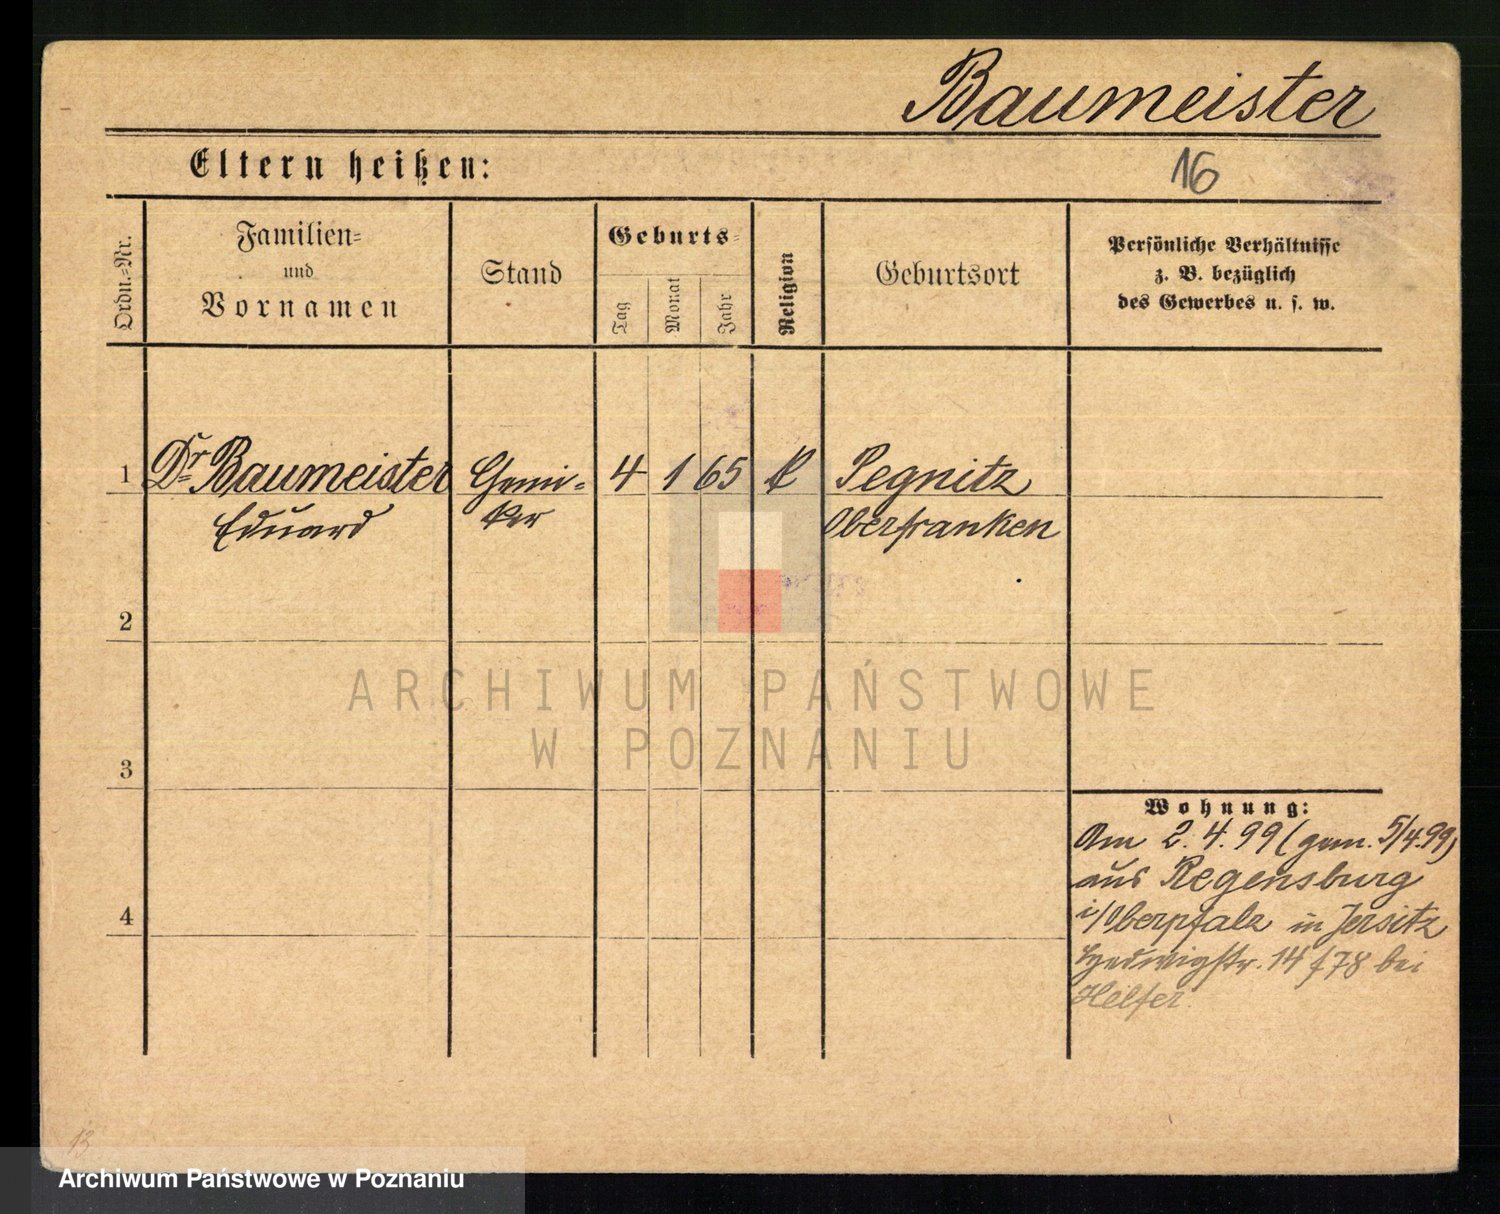 Baumeister
Eltern heißen:
16
Ordn.-Nr.
Familien-
und
Vornamen
Stand
Geburts-
Tag
Monat
Jahr
Religion
Geburtsort
Persönliche Verhältnisse
z. B. bezüglich
des Gewerbes u. s. w.
1
Dr Baumeister
Eduard
Chemi-
ker
4 1 65
k
Pegnitz
Oberfranken
2
3
4
Wohnung:
Am 2. 4. 99 (gem. 5/4.99)
aus Regensburg
i/Oberpfalz in Jersitz
Hedwigstr. 14 /78 bei
Helfer.
13
ARCHIWUM PAŃSTWOWE
W POZNANIU
Archiwum Państwowe w Poznaniu